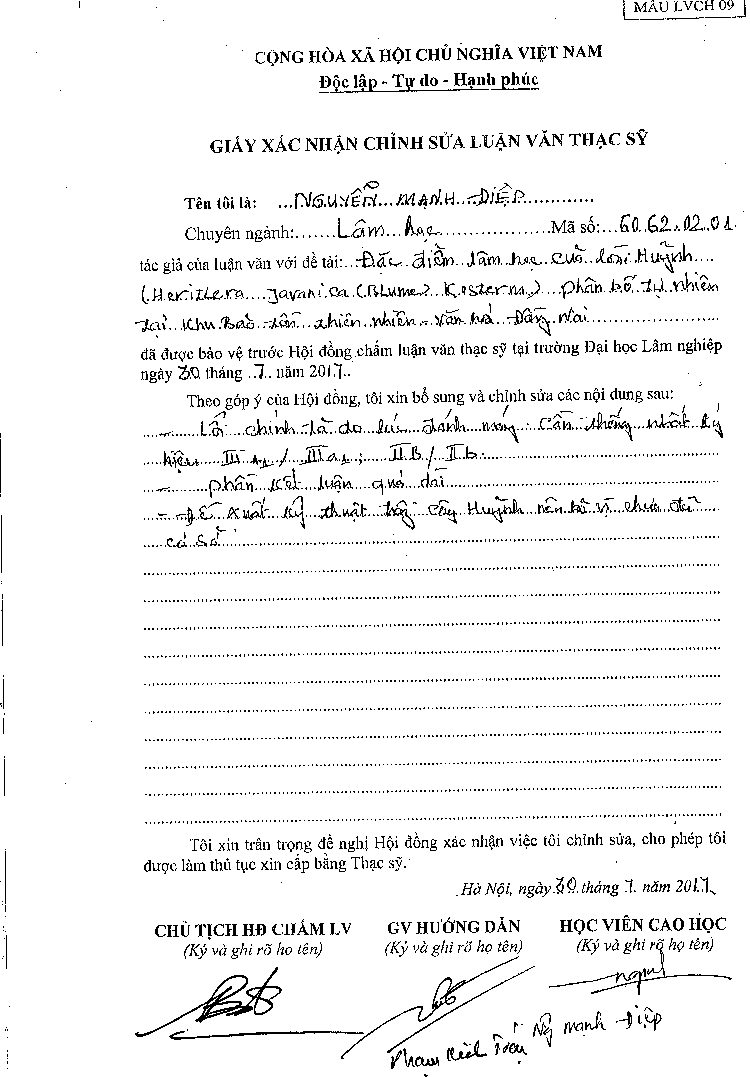 MẪU LVCH 09
CỘNG HÒA XÃ HỘI CHỦ NGHĨA VIỆT NAM
Độc lập - Tự do - Hạnh phúc
GIẤY XÁC NHẬN CHỈNH SỬA LUẬN VĂN THẠC SỸ
Tên tôi là: NGUYỄN MẠNH ĐIỆP
Chuyên ngành: Lâm học Mã số: 60.62.02.01
tác giả của luận văn với đề tài: Đặc điểm lâm học của loài Huỳnh
(Heritiera Javanica (Blume) Kosterm) phân bố tự nhiên
tại Khu Bảo tồn thiên nhiên - Văn hoá Đồng Nai
đã được bảo vệ trước Hội đồng chấm luận văn thạc sỹ tại trường Đại học Lâm nghiệp
ngày 30 tháng 7 năm 2017.
Theo góp ý của Hội đồng, tôi xin bổ sung và chỉnh sửa các nội dung sau:
- Lỗi chính tả do lúc đánh máy. Cần thống nhất ký
hiệu III A1 / III a1; II B / II b.
- Phần kết luận quá dài
- Đề xuất kỹ thuật trồng cây Huỳnh nên bỏ vì chưa đủ
cơ sở
Tôi xin trân trọng đề nghị Hội đồng xác nhận việc tôi chỉnh sửa, cho phép tôi
được làm thủ tục xin cấp bằng Thạc sỹ.
Hà Nội, ngày 30 tháng 7 năm 2017
CHỦ TỊCH HĐ CHẤM LV GV HƯỚNG DẪN HỌC VIÊN CAO HỌC
(Ký và ghi rõ họ tên) (Ký và ghi rõ họ tên) (Ký và ghi rõ họ tên)
Ng Mạnh Điệp
Phạm